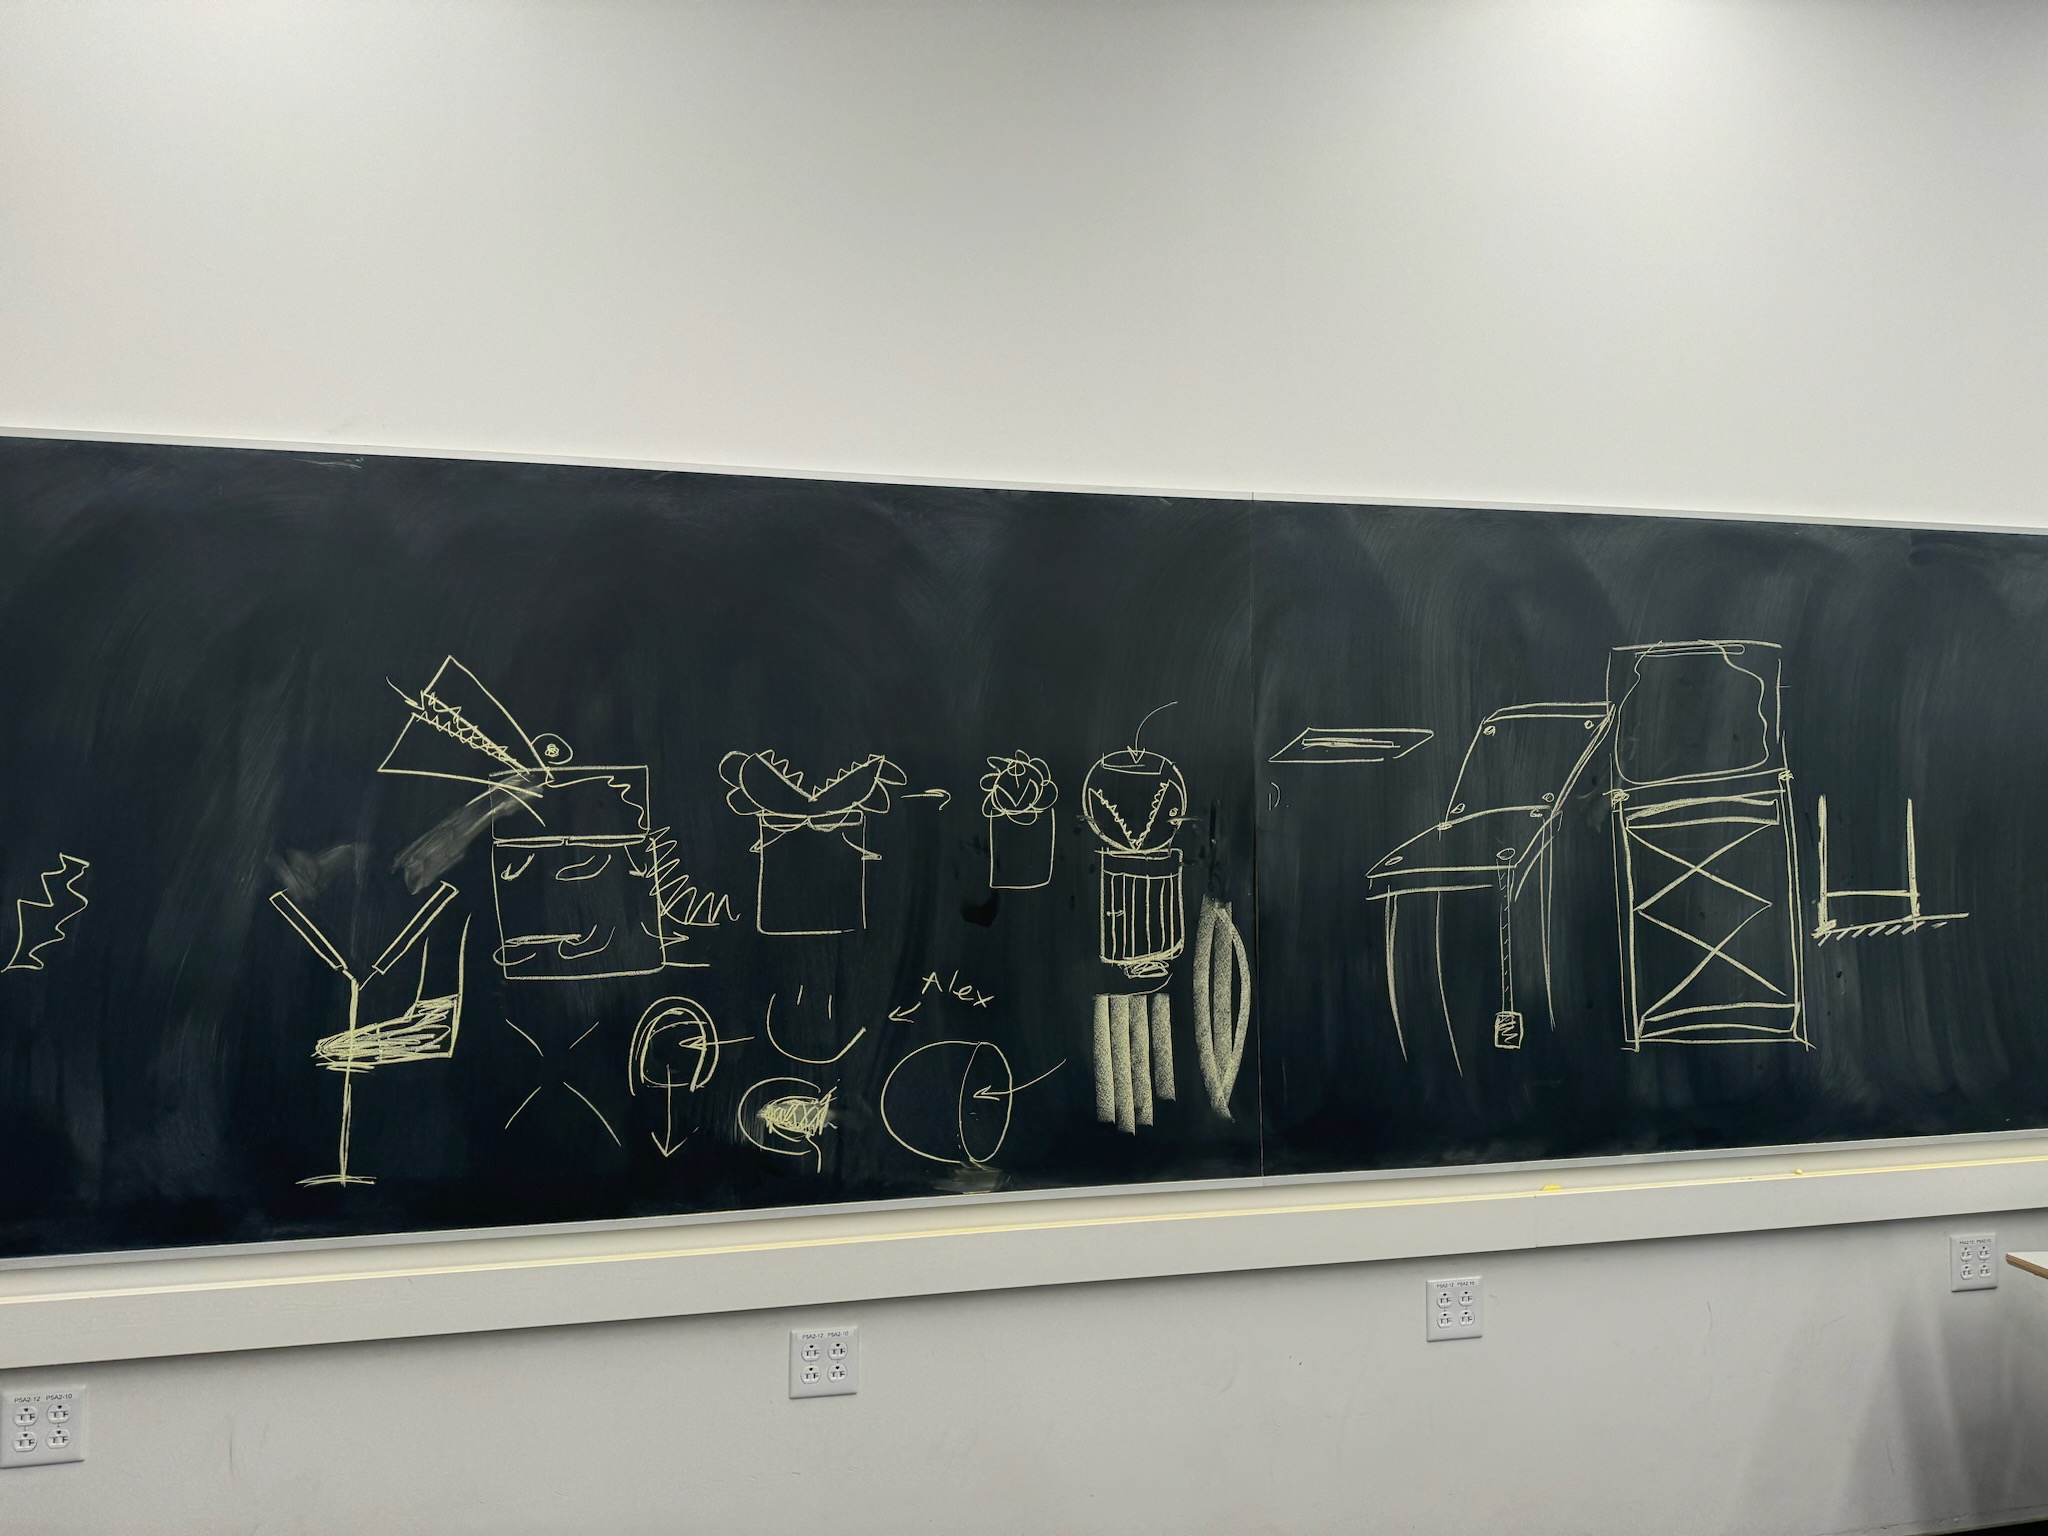 Alex
1).
P5A2-12 P5A2-10
P5A2-12 P5A2-10
P5A2-12 P5A2-10
P5A2-12 P5A2-10